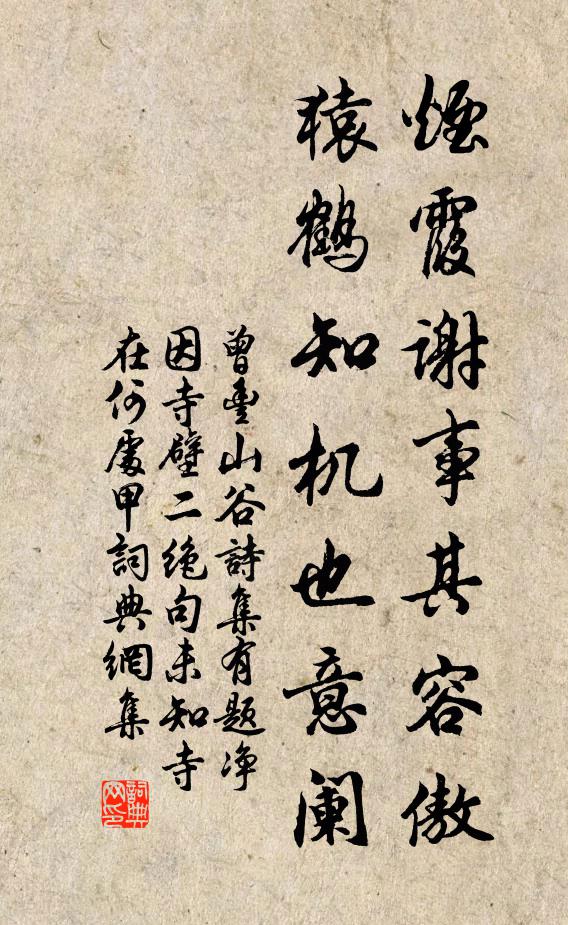 煙霞谢事其容傲
猿鶴知机也意阑
曾豐山谷詩集有题净
因寺壁二绝句未知寺
在何處甲詞典網集
詞典网印